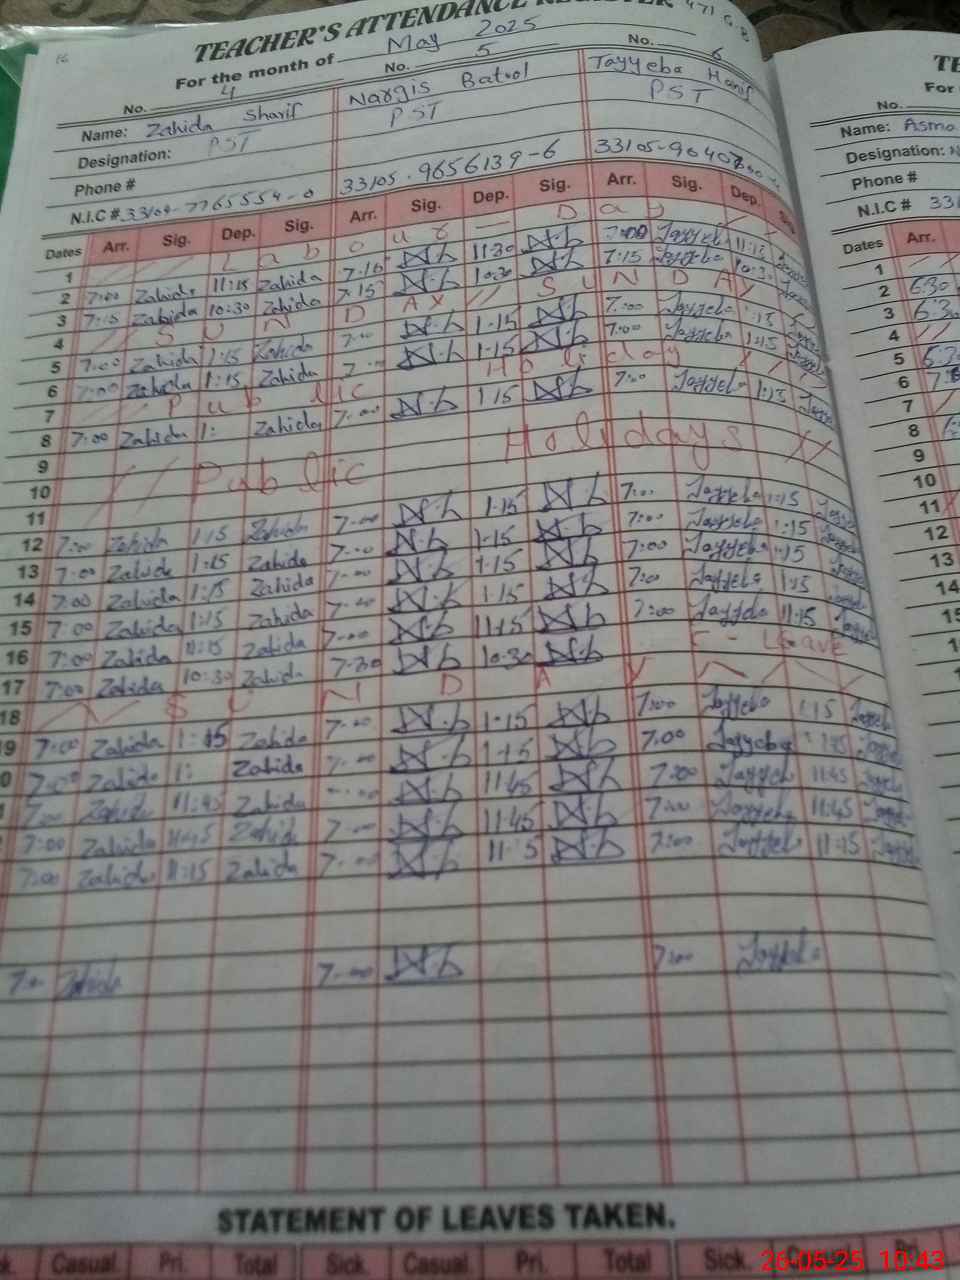 TEACHER'S ATTENDANCE REGISTER 471 G.B
For the month of May 2025
No. 4 No. 5 No. 6
Name: Zahida Sharif Nargis Batool Tayyeba Hanif
Designation: PST PST PST
Phone #
N.I.C # 33104-7765554-0 33105-9656139-6 33105-9640
Dates Arr. Sig. Dep. Sig. Arr. Sig. Dep. Sig. Arr. Sig. Dep.
1 Labour Day
2 7:00 Zahida 11:15 Zahida 7:15 N.b 11:30 N.b 7:00 Tayyeba 11:15
3 7:15 Zahida 10:30 Zahida 7:15 N.b 10:30 N.b 7:15 Tayyeba 10:3
4 SUNDAY SUNDAY
5 7:00 Zahida 1:15 Zahida 7:00 N.b 1-15 N.b 7:00 Tayyeba 1:15
6 7:00 Zahida 1:15 Zahida 7:00 N.b 1-15 N.b 7:00 Tayyeba 1:15
7 Public Holiday
8 7:00 Zahida 1: Zahida 7:00 N.b 1-15 N.b 7:00 Tayyeba 1:15
9
10 Public Holidays
11
12 7:00 Zahida 1:15 Zahida 7-00 N.b 1-15 N.b 7:00 Tayyeba 1:15
13 7:00 Zahida 1:15 Zahida 7-00 N.b 1-15 N.b 7:00 Tayyeba 1:15
14 7:00 Zahida 1:15 Zahida 7-00 N.b 1-15 N.b 7:00 Tayyeba 1:15
15 7:00 Zahida 1:15 Zahida 7-00 N.b 1-15 N.b 7:00 Tayyeba 1:15
16 7:00 Zahida 11:15 Zahida 7-00 N.b 11-15 N.b 7:00 Tayyeba 11:15
17 7:00 Zahida 10:30 Zahida 7-30 N.b 10:30 N.b C-Leave
18 SUNDAY
19 7:00 Zahida 1:15 Zahida 7-00 N.b 1-15 N.b 7:00 Tayyeba 1:15 Tayyeba
0 7:00 Zahida 1: Zahida 7-00 N.b 1-15 N.b 7:00 Tayyeba 1:15 Tayyeba
7:00 Zahida 11:45 Zahida N.b 11:45 N.b 7:00 Tayyeba 11:45 Tayyeba
7:00 Zahida 11:45 Zahida 7-00 N.b 11:45 N.b 7:00 Tayyeba 11:45 Tayyeba
7:00 Zahida 11:15 Zahida 7-00 N.b 11-15 N.b 7:00 Tayyeba 11:15 Tayyeba
7:00 Zahida 7-00 N.b 7:00 Tayyeba
STATEMENT OF LEAVES TAKEN.
Casual Pri. Total Sick. Casual Pri. Total Sick. Casual Pri.
TE
For
No.
Name: Asma
Designation:
Phone #
N.I.C # 331
Dates Arr.
1
2 6:30
3 6:3
4
5
6
7
8
9
10
11
12
13
14
26-05-25 10:43